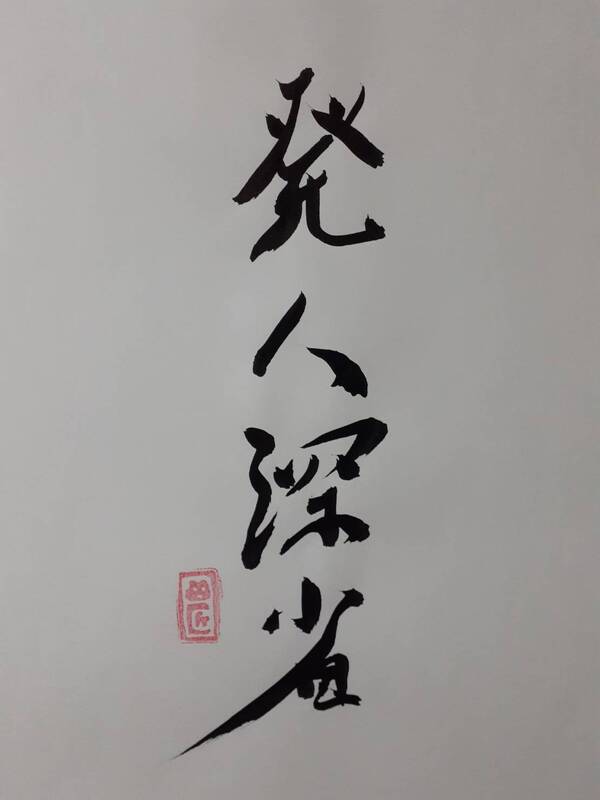 発人深省